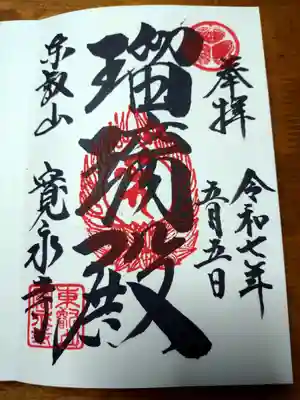 奉拝
令和七年
五月五日
瑠璃殿
東叡山
寛永寺